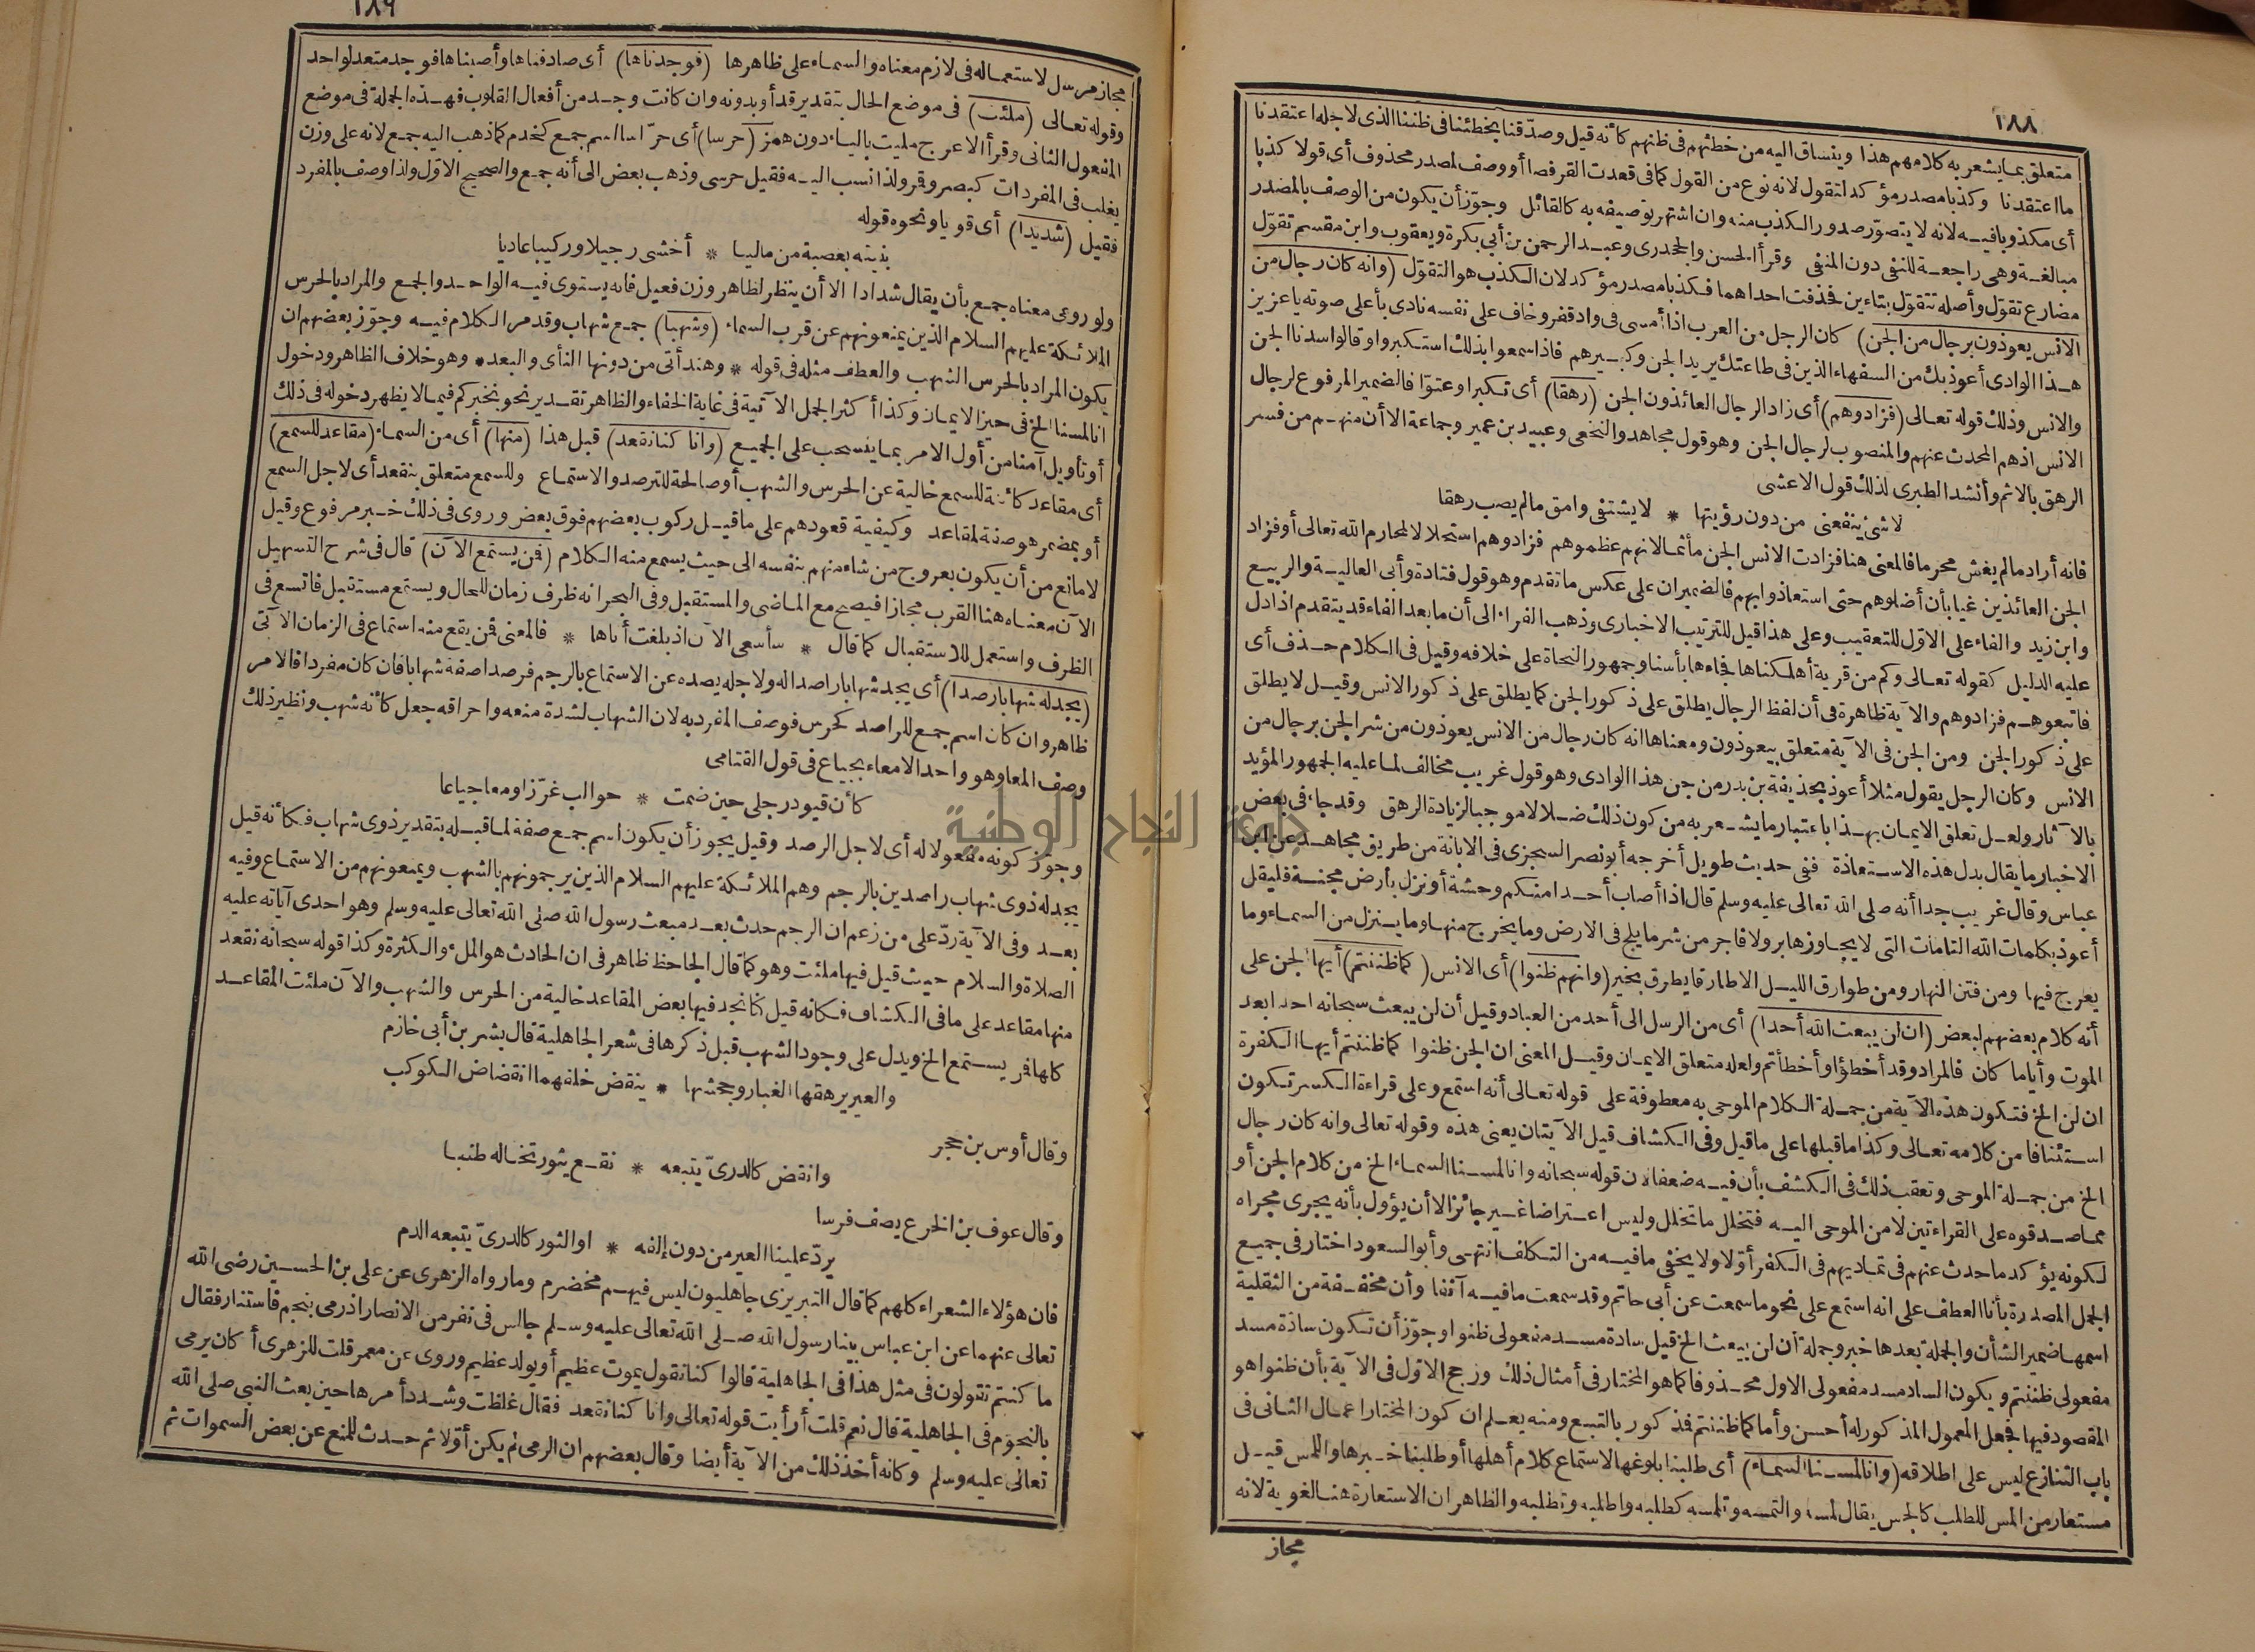 ١٨٨
متعلق بما يشعر به كلامهم هذا وينساق اليه من خطئهم فى ظنهم كأنه قيل وصدّقنا بخطئنا فى ظننا الذى لاجله اعتقدنا
ما اعتقدنا وكذبا مصدر مؤكد لتقول لانه نوع من القول كما فى قعدت القرفصا أو وصف لمصدر محذوف أى قولا كذبا
أى مكذوبا فيه لانه لا يتصوّر صدور الكذب منه وان اشتهر توصيفه به كالقائل وجوّز أن يكون من الوصف بالمصدر
مبالغة وهى راجعة للنفى دون المنفى وقرأ الحسن والجحدرى وعبد الرحمن بن أبى بكرة ويعقوب وابن مقسم تقوّل
مضارع تقوّل وأصله تتقوّل بتاءين فحذفت احداهما فكذبا مصدر مؤكد لان الكذب هو التقوّل (وانه كان رجال من
الانس يعوذون برجال من الجن) كان الرجل من العرب اذا أمسى فى واد قفر وخاف على نفسه نادى بأعلى صوته يا عزيز
هذا الوادى أعوذ بك من السفهاء الذين فى طاعتك يريد الجن وكبيرهم فاذا سمعوا بذلك استكبروا وقالوا سدنا الجن
والانس وذلك قوله تعالى (فزادوهم) أى زاد الرجال العائذون الجن (رهقا) أى تكبرا وعتوّا فالضمير المرفوع لرجال
الانس اذهم المحدث عنهم والمنصوب لرجال الجن وهو قول مجاهد والنخعى وعبيد بن عمير وجماعة الا أن منهم من فسر
الرهق بالاثم وأنشد الطبرى لذلك قول الاعشى
لا شئ ينفعنى من دون رؤيتها * لا يشتفى وامق ما لم يصب رهقا
فانه أراد ما لم يغش محرما فالمعنى هنا فزادت الانس الجن مأثما لانهم عظموهم فزادوهم استحلالا لمحارم الله تعالى أو فزاد
الجن العائذين غيا بأن أضلوهم حتى استعاذوا بهم فالضميران على عكس ما تقدم وهو قول قتادة وأبى العالية والربيع
وابن زيد والفاء على الاوّل للتعقيب وعلى هذا قيل للترتيب الاخبارى وذهب الفراء الى أن ما بعد الفاء قد يتقدم اذا دل
عليه الدليل كقوله تعالى وكم من قرية أهلكناها فجاءها بأسنا وجمهور النحاة على خلافه وقيل فى الكلام حذف أى
فاتبعوهم فزادوهم والآية ظاهرة فى أن لفظ الرجال يطلق على ذكور الجن كما يطلق على ذكور الانس وقيل لا يطلق
على ذكور الجن ومن الجن فى الآية متعلق بيعوذون ومعناها انه كان رجال من الانس يعوذون من شر الجن برجال من
الانس وكان الرجل يقول مثلا أعوذ بحذيفة بن بدر من جن هذا الوادى وهو قول غريب مخالف لما عليه الجمهور المؤيد
بالآثار ولعل تعلق الايمان بهذا باعتبار ما يشعر به من كون ذلك ضلالا موجبا لزيادة الرهق وقد جاء فى بعض
الاخبار ما يقال بدل هذه الاستعاذة ففى حديث طويل أخرجه أبو نصر السجزى فى الابانة من طريق مجاهد عن ابن
عباس وقال غريب جدا أنه صلى الله تعالى عليه وسلم قال اذا أصاب أحدا منكم وحشة أو نزل بأرض مجنة فليقل
أعوذ بكلمات الله التامات التى لا يجاوزها بر ولا فاجر من شر ما يلج فى الارض وما يخرج منها وما ينزل من السماء وما
يعرج فيها ومن فتن النهار ومن طوارق الليل الا طارقا يطرق بخير (وانهم ظنوا) أى الانس (كما ظننتم) أيها الجن على
أنه كلام بعضهم لبعض (ان لن يبعث الله أحدا) أى من الرسل الى أحد من العباد وقيل أن لن يبعث سبحانه احدا بعد
الموت وأياما كان فالمراد وقد أخطؤا وأخطأتم ولعله متعلق الايمان وقيل المعنى ان الجن ظنوا كما ظننتم أيها الكفرة
ان لن الخ فتكون هذه الآية من جملة الكلام الموحى به معطوفة على قوله تعالى أنه استمع وعلى قراءة الكسر تكون
استئنافا من كلامه تعالى وكذا ما قبلها على ما قيل وفى الكشاف قيل الآيتان يعنى هذه وقوله تعالى وانه كان رجال
الخ من جملة الموحى وتعقب ذلك فى الكشف بأن فيه ضعفا لان قوله سبحانه وانا لمسنا السماء الخ من كلام الجن أو
مما صدقوه على القراءتين لا من الموحى اليه فتخلل ما تخلل وليس اعتراضا غير جائز الا أن يؤول بأنه يجرى مجراه
لكونه يؤكد ما حدث عنهم فى تماديهم فى الكفر أوّلا ولا يخفى ما فيه من التكلف انتهى وأبو السعود اختار فى جميع
الجمل المصدرة بأنا العطف على انه استمع على نحو ما سمعت عن أبى حاتم وقد سمعت ما فيه آنفا وأن مخففة من الثقيلة
اسمها ضمير الشأن والجملة بعدها خبر وجملة ان لن يبعث الخ قيل سادة مسد مفعولى ظنوا وجوّز أن تكون سادة مسد
مفعولى ظننتم ويكون الساد مسد مفعولى الاول محذوفا كما هو المختار فى أمثال ذلك ورجح الاوّل فى الآية بأن ظنوا هو
المقصود فيها فجعل المعمول المذكور له أحسن وأما كما ظننتم فذكور بالتبع ومنه يعلم ان كون المختار اعمال الثانى فى
باب التنازع ليس على اطلاقه (وانا لمسنا السماء) أى طلبنا بلوغها لاستماع كلام أهلها أو طلبنا خبرها واللمس قيل
مستعار من المس للطلب كالجس يقال لمسه والتمسه وتلمسه كطلبه واطلبه وتطلبه والظاهر ان الاستعارة هنا لغوية لانه
مجاز
١٨٩
مجاز مرسل لاستعماله فى لازم معناه والسماء على ظاهرها (فوجدناها) أى صادفناها وأصبناها فوجد متعد لواحد
وقوله تعالى (ملئت) فى موضع الحال بتقدير قد أو بدونه وان كانت وجد من أفعال القلوب فهذه الجملة فى موضع
المفعول الثانى وقرأ الاعرج مليت بالياء دون همز (حرسا) أى حرّاسا اسم جمع كخدم كما ذهب اليه جمع لانه على وزن
يغلب فى المفردات كبصر وقمر ولذا نسب اليه فقيل حرسى وذهب بعض الى أنه جمع والصحيح الاوّل ولذا وصف بالمفرد
فقيل (شديدا) أى قويا ونحوه قوله
بنيته بعصبة من ماليا * أخشى رجيلا وركيبا عاديا
ولو روعى معناه جمع بأن يقال شدادا الا أن ينظر لظاهر وزن فعيل فانه يستوى فيه الواحد والجمع والمراد بالحرس
الملائكة عليهم السلام الذين يمنعونهم عن قرب السماء (وشهبا) جمع شهاب وقد مر الكلام فيه وجوّز بعضهم ان
يكون المراد بالحرس الشهب والعطف مثله فى قوله * وهند أتى من دونها النأى والبعد * وهو خلاف الظاهر ودخول
انا لمسنا الخ فى حيز الايمان وكذا أكثر الجمل الآتية فى غاية الخفاء والظاهر تقدير نحو نخبركم فيما لا يظهر دخوله فى ذلك
أو تأويل آمنا من أول الامر بما ينسحب على الجميع (وانا كنا نقعد) قبل هذا (منها) أى من السماء (مقاعد للسمع)
أى مقاعد كائنة للسمع خالية عن الحرس والشهب أو صالحة للترصد والاستماع وللسمع متعلق بنقعد أى لاجل السمع
أو بمضمر هو صفة لمقاعد وكيفية قعودهم على ما قيل ركوب بعضهم فوق بعض وروى فى ذلك خبر مرفوع وقيل
لا مانع من أن يكون بعروج من شاء منهم بنفسه الى حيث يسمع منه الكلام (فمن يستمع الآن) قال فى شرح التسهيل
الآن معناه هنا القرب مجازا فيصح مع الماضى والمستقبل وفى البحر انه ظرف زمان للحال ويستمع مستقبل فاتسع فى
الظرف واستعمل للاستقبال كما قال * سأسعى الآن اذ بلغت أناها * فالمعنى فمن يقع منه استماع فى الزمان الآتى
(يجد له شهابا رصدا) أى يجد شهابا راصدا له ولاجله يصده عن الاستماع بالرجم فرصدا صفة شهابا فان كان مفردا فالامر
ظاهر وان كان اسم جمع للراصد كحرس فوصف المفرد به لان الشهاب لشدة منعه واحراقه جعل كأنه شهب ونظير ذلك
وصف المعا وهو واحد الامعاء بجياع فى قول القتامى
كأن قيود رجلى حين ضمت * حوالب غرّزا ومعا جياعا
وجوّز كونه مفعولا له أى لاجل الرصد وقيل يجوز أن يكون اسم جمع صفة لما قبله بتقدير ذوى شهاب فكأنه قيل
يجد له ذوى شهاب راصدين بالرجم وهم الملائكة عليهم السلام الذين يرجمونهم بالشهب ويمنعونهم من الاستماع وفيه
بعد وفى الآية ردّ على من زعم ان الرجم حدث بعد مبعث رسول الله صلى الله تعالى عليه وسلم وهو احدى آياته عليه
الصلاة والسلام حيث قيل فيها ملئت وهو كما قال الجاحظ ظاهر فى ان الحادث هو الملء والكثرة وكذا قوله سبحانه نقعد
منها مقاعد على ما فى الكشاف فكانه قيل كنا نجد فيها بعض المقاعد خالية من الحرس والشهب والآن ملئت المقاعد
كلها فمن يستمع الخ ويدل على وجود الشهب قبل ذكرها فى شعر الجاهلية قال بشر بن أبى خازم
والعير يرهقها الغبار وجحشها * ينقض خلفهما انقضاض الكوكب
وقال أوس بن حجر
وانقض كالدرىّ يتبعه * نقع يثور تخاله طنبا
وقال عوف بن الخرع يصف فرسا
يردّ علينا العير من دون إلفه * او الثور كالدرىّ يتبعه الدم
فان هؤلاء الشعراء كلهم كما قال التبريزى جاهليون ليس فيهم مخضرم وما رواه الزهرى عن على بن الحسين رضى الله
تعالى عنهما عن ابن عباس بينا رسول الله صلى الله تعالى عليه وسلم جالس فى نفر من الانصار اذ رمى بنجم فاستنار فقال
ما كنتم تقولون فى مثل هذا فى الجاهلية قالوا كنا نقول يموت عظيم أو يولد عظيم وروى عن معمر قلت للزهرى أكان يرمى
بالنجوم فى الجاهلية قال نعم قلت أرأيت قوله تعالى وانا كنا نقعد فقال غلظت وشدد أمرها حين بعث النبى صلى الله
تعالى عليه وسلم وكانه أخذ ذلك من الآية أيضا وقال بعضهم ان الرمى لم يكن أوّلا ثم حدث للمنع عن بعض السموات ثم
جامعة النجاح الوطنية